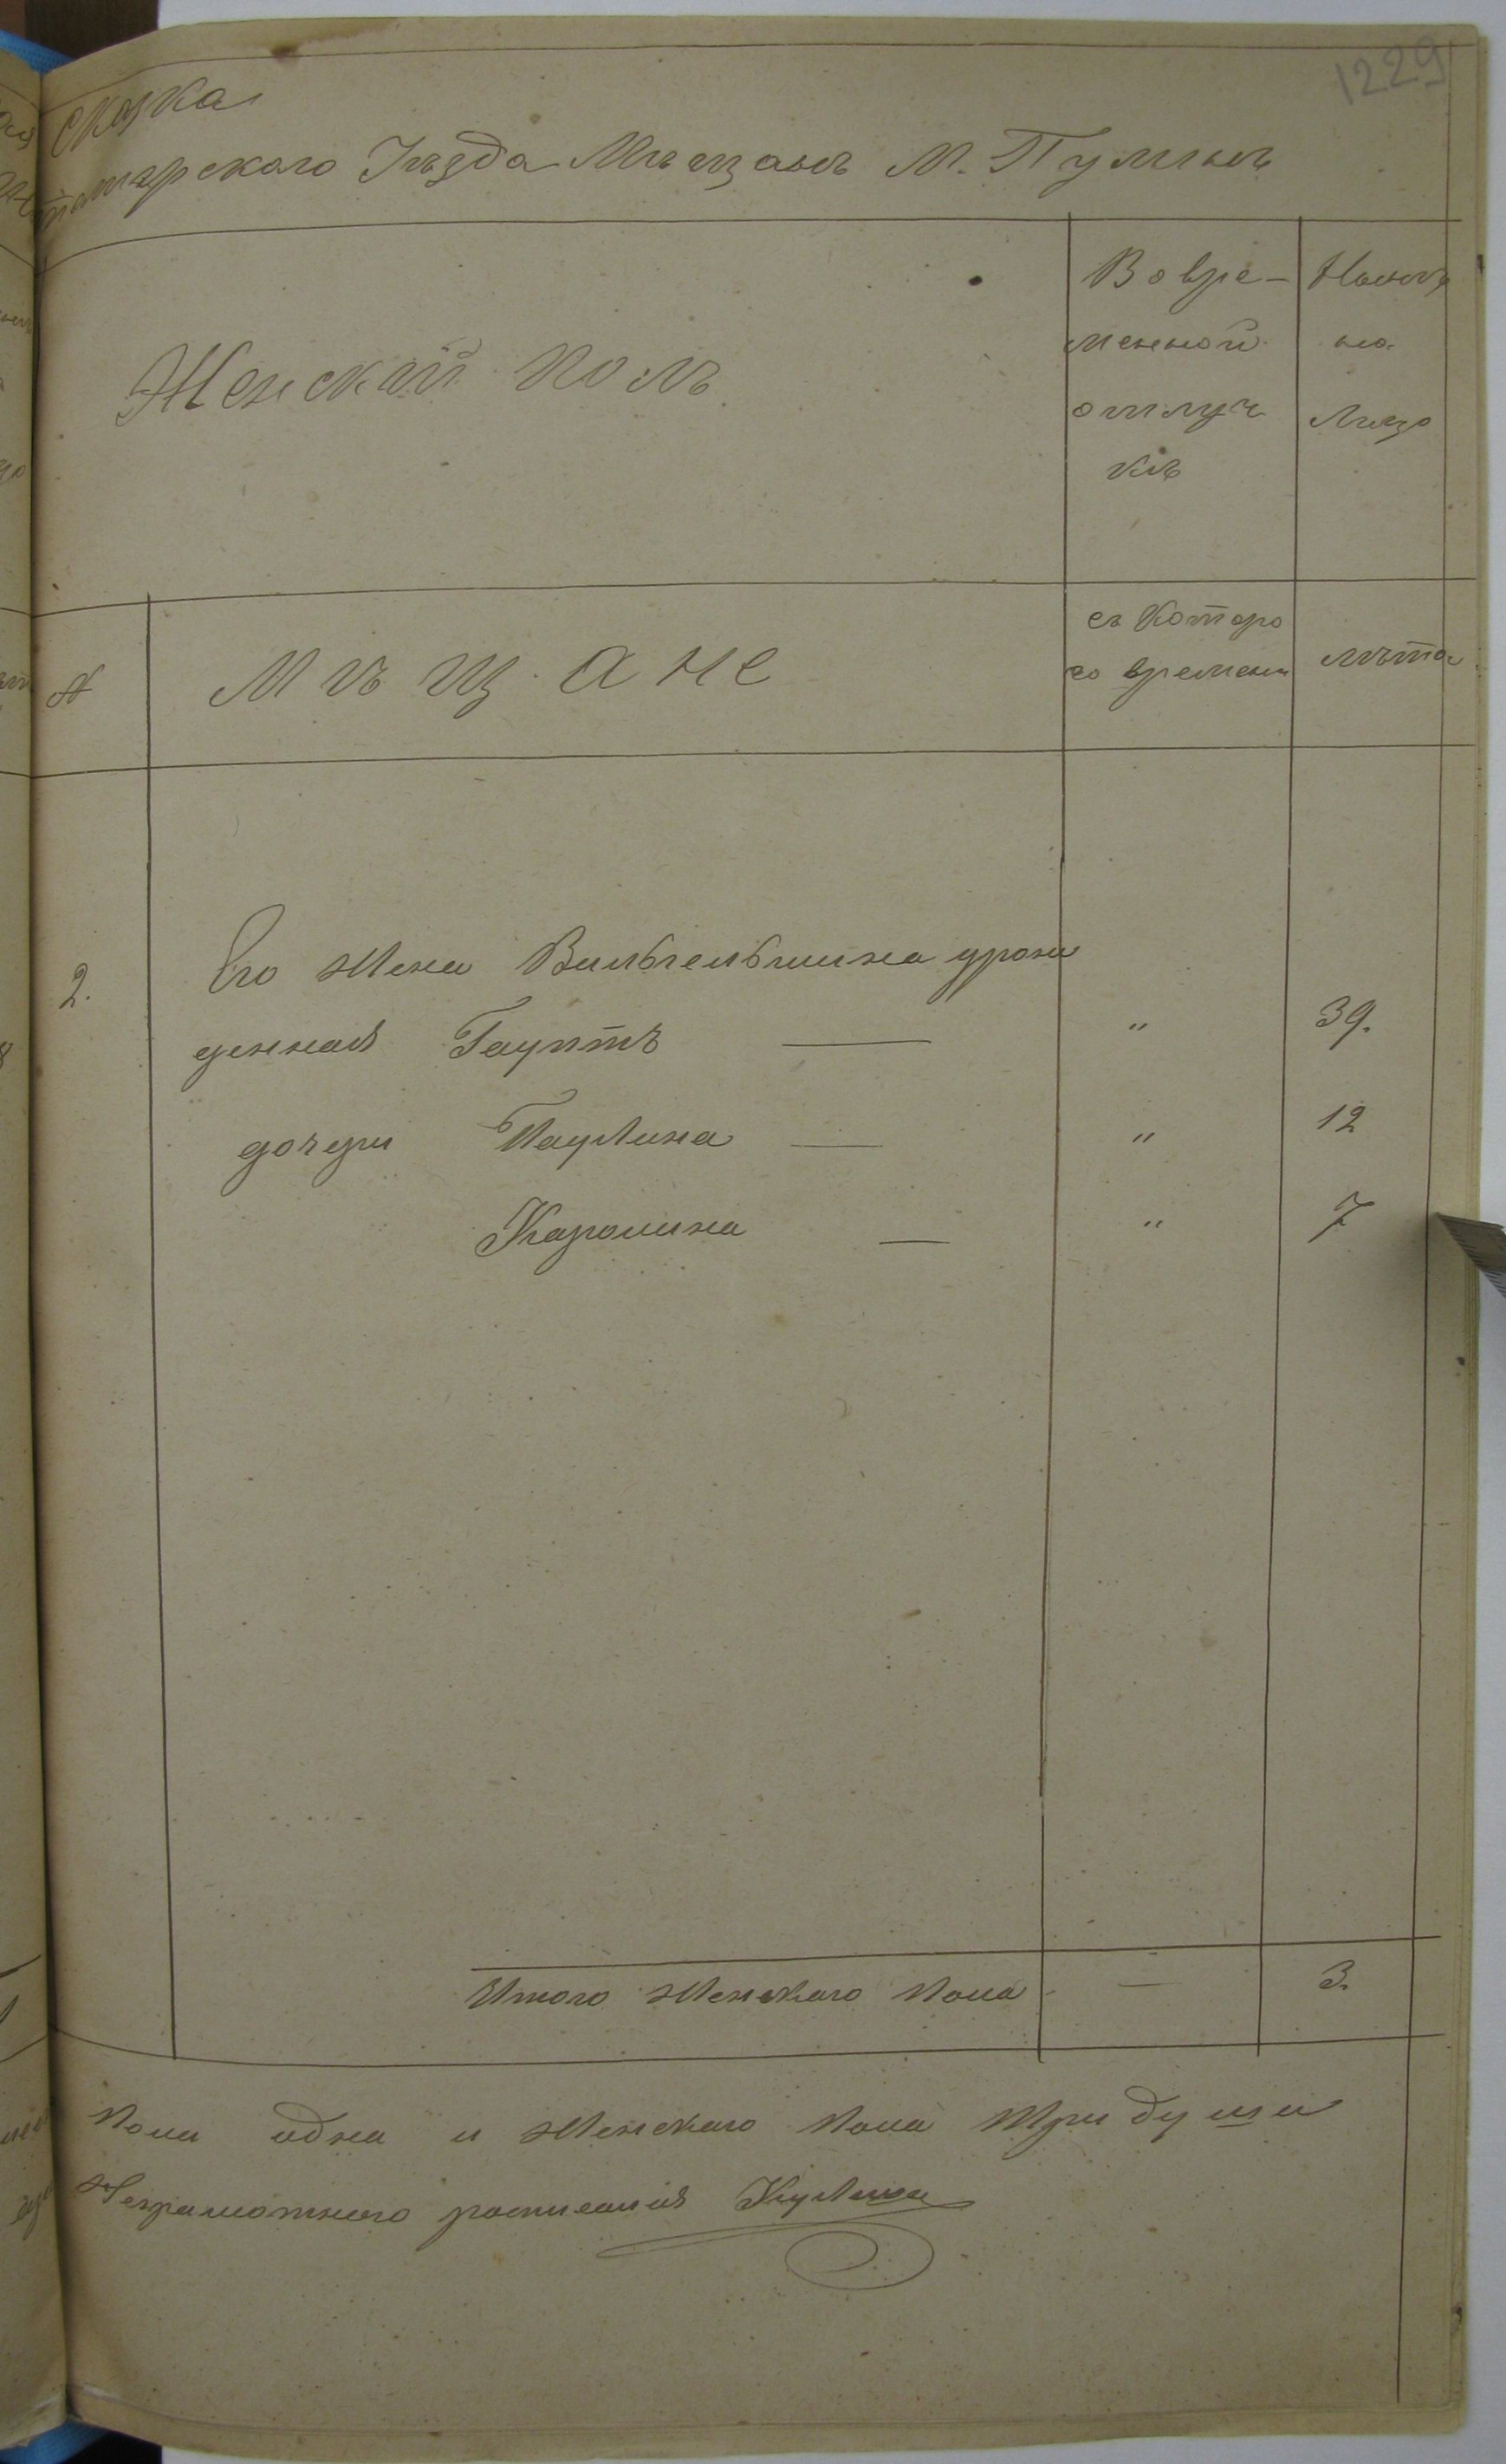 1229
сказка
томирского Уѣзда Мѣщанъ М. Пулинъ
Женский полъ
Во вре-
менной
отлуч
кѣ
Налич
но
Лицо
№
Мѣщане
съ Которо
го времени
лѣта
2.
Его жена Вильгельмина урож
денная Гауптъ — " 39.
дочери Паулина — " 12
Каролина — " 7
Итого женскаго пола — 3.
пола одна и женскаго пола три души
Неграмотного росписался